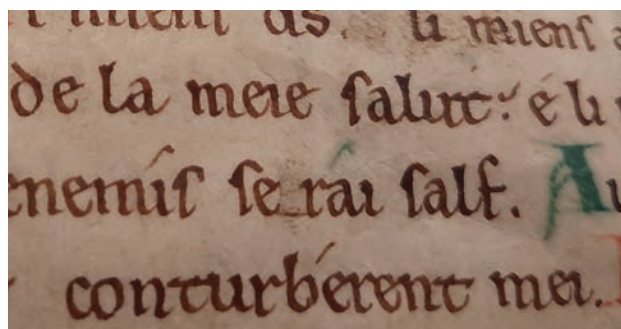 miens ds. li miens
de la meie salut: é li
enemis se rái salf. Au
conturbérent mei.